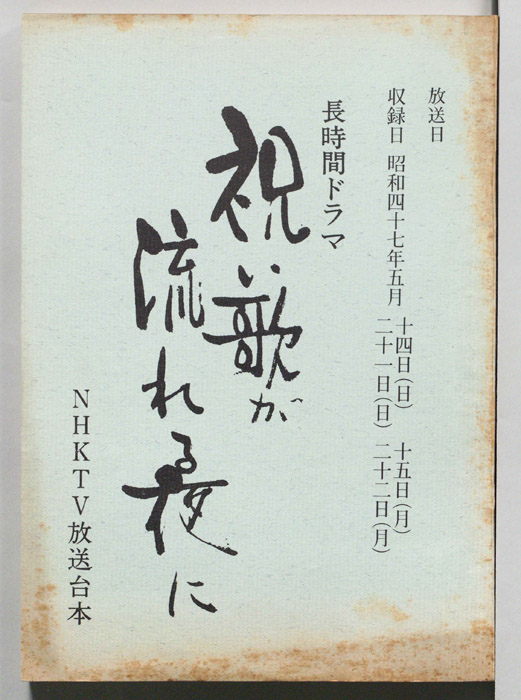 放送日
収録日 昭和四十七年五月 十四日(日) 十五日(月)
二十一日(日) 二十二日(月)
長時間ドラマ
祝い歌が
流れる夜に
NHKTV放送台本